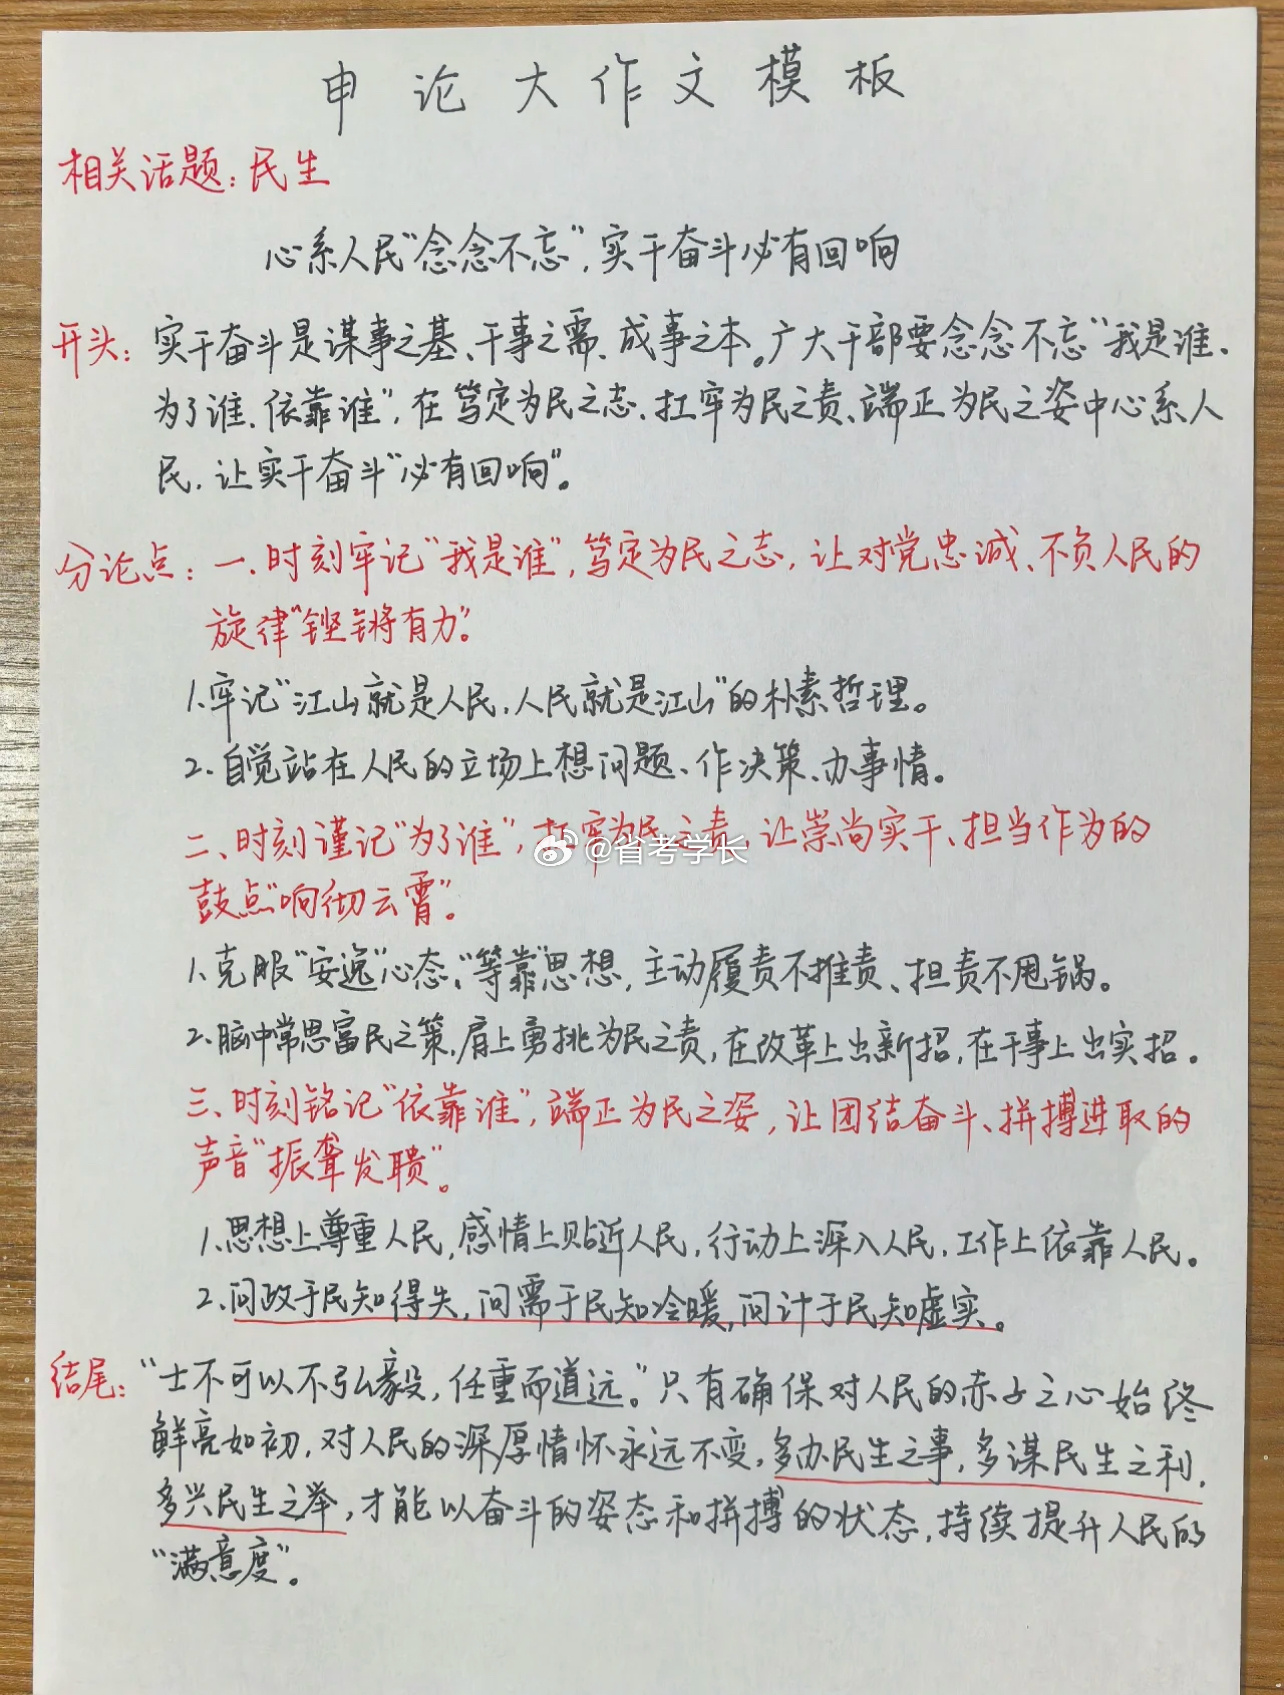 申论大作文模板
相关话题：民生
心系人民“念念不忘”，实干奋斗必有回响
开头：实干奋斗是谋事之基、干事之需、成事之本。广大干部要念念不忘“我是谁、
为了谁、依靠谁”，在笃定为民之志、扛牢为民之责、端正为民之姿中心系人
民，让实干奋斗“必有回响”。
分论点：一、时刻牢记“我是谁”，笃定为民之志，让对党忠诚、不负人民的
旋律“铿锵有力”。
1.牢记“江山就是人民，人民就是江山”的朴素哲理。
2.自觉站在人民的立场上想问题、作决策、办事情。
二、时刻谨记“为了谁”，扛牢为民之责，让崇尚实干、担当作为的
@省考学长
鼓点“响彻云霄”。
1.克服“安逸”心态、“等靠”思想，主动履责不推责、担责不甩锅。
2.脑中常思富民之策，肩上勇挑为民之责，在改革上出新招，在干事上出实招。
三、时刻铭记“依靠谁”，端正为民之姿，让团结奋斗、拼搏进取的
声音“振聋发聩”。
1.思想上尊重人民，感情上贴近人民，行动上深入人民，工作上依靠人民。
2.问政于民知得失，问需于民知冷暖，问计于民知虚实。
结尾：“士不可以不弘毅，任重而道远。”只有确保对人民的赤子之心始终
鲜亮如初，对人民的深厚情怀永远不变，多办民生之事，多谋民生之利，
多兴民生之举，才能以奋斗的姿态和拼搏的状态，持续提升人民的
“满意度”。